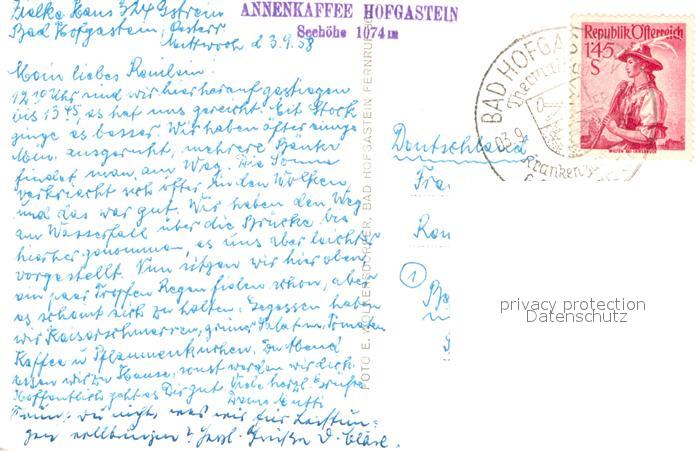 Zielke Haus 324 Gstrein
Bad Hofgastein, Österr
Mittwoch d 3.9.58
ANNENKAFFEE HOFGASTEIN
Seehöhe 1074 m
Mein liebes
12,10 Uhr sind wir hierherauf gestiegen
bis 13 45, es hat uns gereicht. Mit Stock
ginge es besser. Wir haben öfter einige
Min. ausgeruht, mehrere Bänke
findet man am Weg. Die Sonne
verkriecht sich öfter hinter den Wolken,
und das war gut. Wir haben den Weg
am Wasserfall über die Brücke bis
hierher genommen, es uns aber leichter
vorgestellt. Nun sitzen wir hier oben
ein paar Tropfen Regen fielen schon, aber
es scheint sich zu halten. Gegessen haben
wir Kaiserschmarren, grünen Salat m. Tomaten
Kaffee u Pflaumenkuchen. Zu Abend
essen wir zu Hause, sonst werden wir dick.
Hoffentlich geht es Dir gut. Viele herzl. Grüße
Deine Mutti
wir nicht, was wir für Leistun-
gen vollbringen? Herzl. Grüße D.
FOTO E. BAD HOFGASTEIN FERNRUF
Republik Österreich
1'45
S
BAD HOFGAS
03.9.
Deutschland
Fra
①
privacy protection
Datenschutz